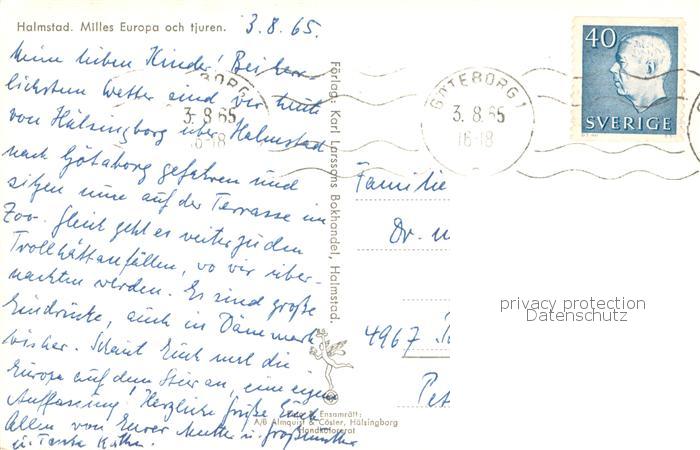 Halmstad. Milles Europa och tjuren.
3.8.65.
Meine lieben Kinder! Bei herr-
lichstem Wetter sind wir heute
von Hälsingborg über Halmstad
nach Götaborg gefahren und
sitzen nun auf der Terrasse im
Zoo. Gleich geht es weiter zu den
Trollhättanfällen, wo wir über-
nachten werden. Es sind große
Eindrücke, auch in Dänemark
bisher. Schaut Euch mal die
Europa auf dem Stier an, eine eigene
Auffassung! Herzliche Grüße Euch
Allen von Eurer Mutter u. Großmutter
u. Tante Käthe.
Förlag: Karl Larssons Bokhandel, Halmstad.
Ensamrätt:
A/B Almquist & Cöster, Hälsingborg
Handkolorerat
BORG
3.8.65
16-18
GÖTEBORG 1
3.8.65
16-18
40
SVERIGE
Familie
Dr.
4967
Pet
privacy protection
Datenschutz